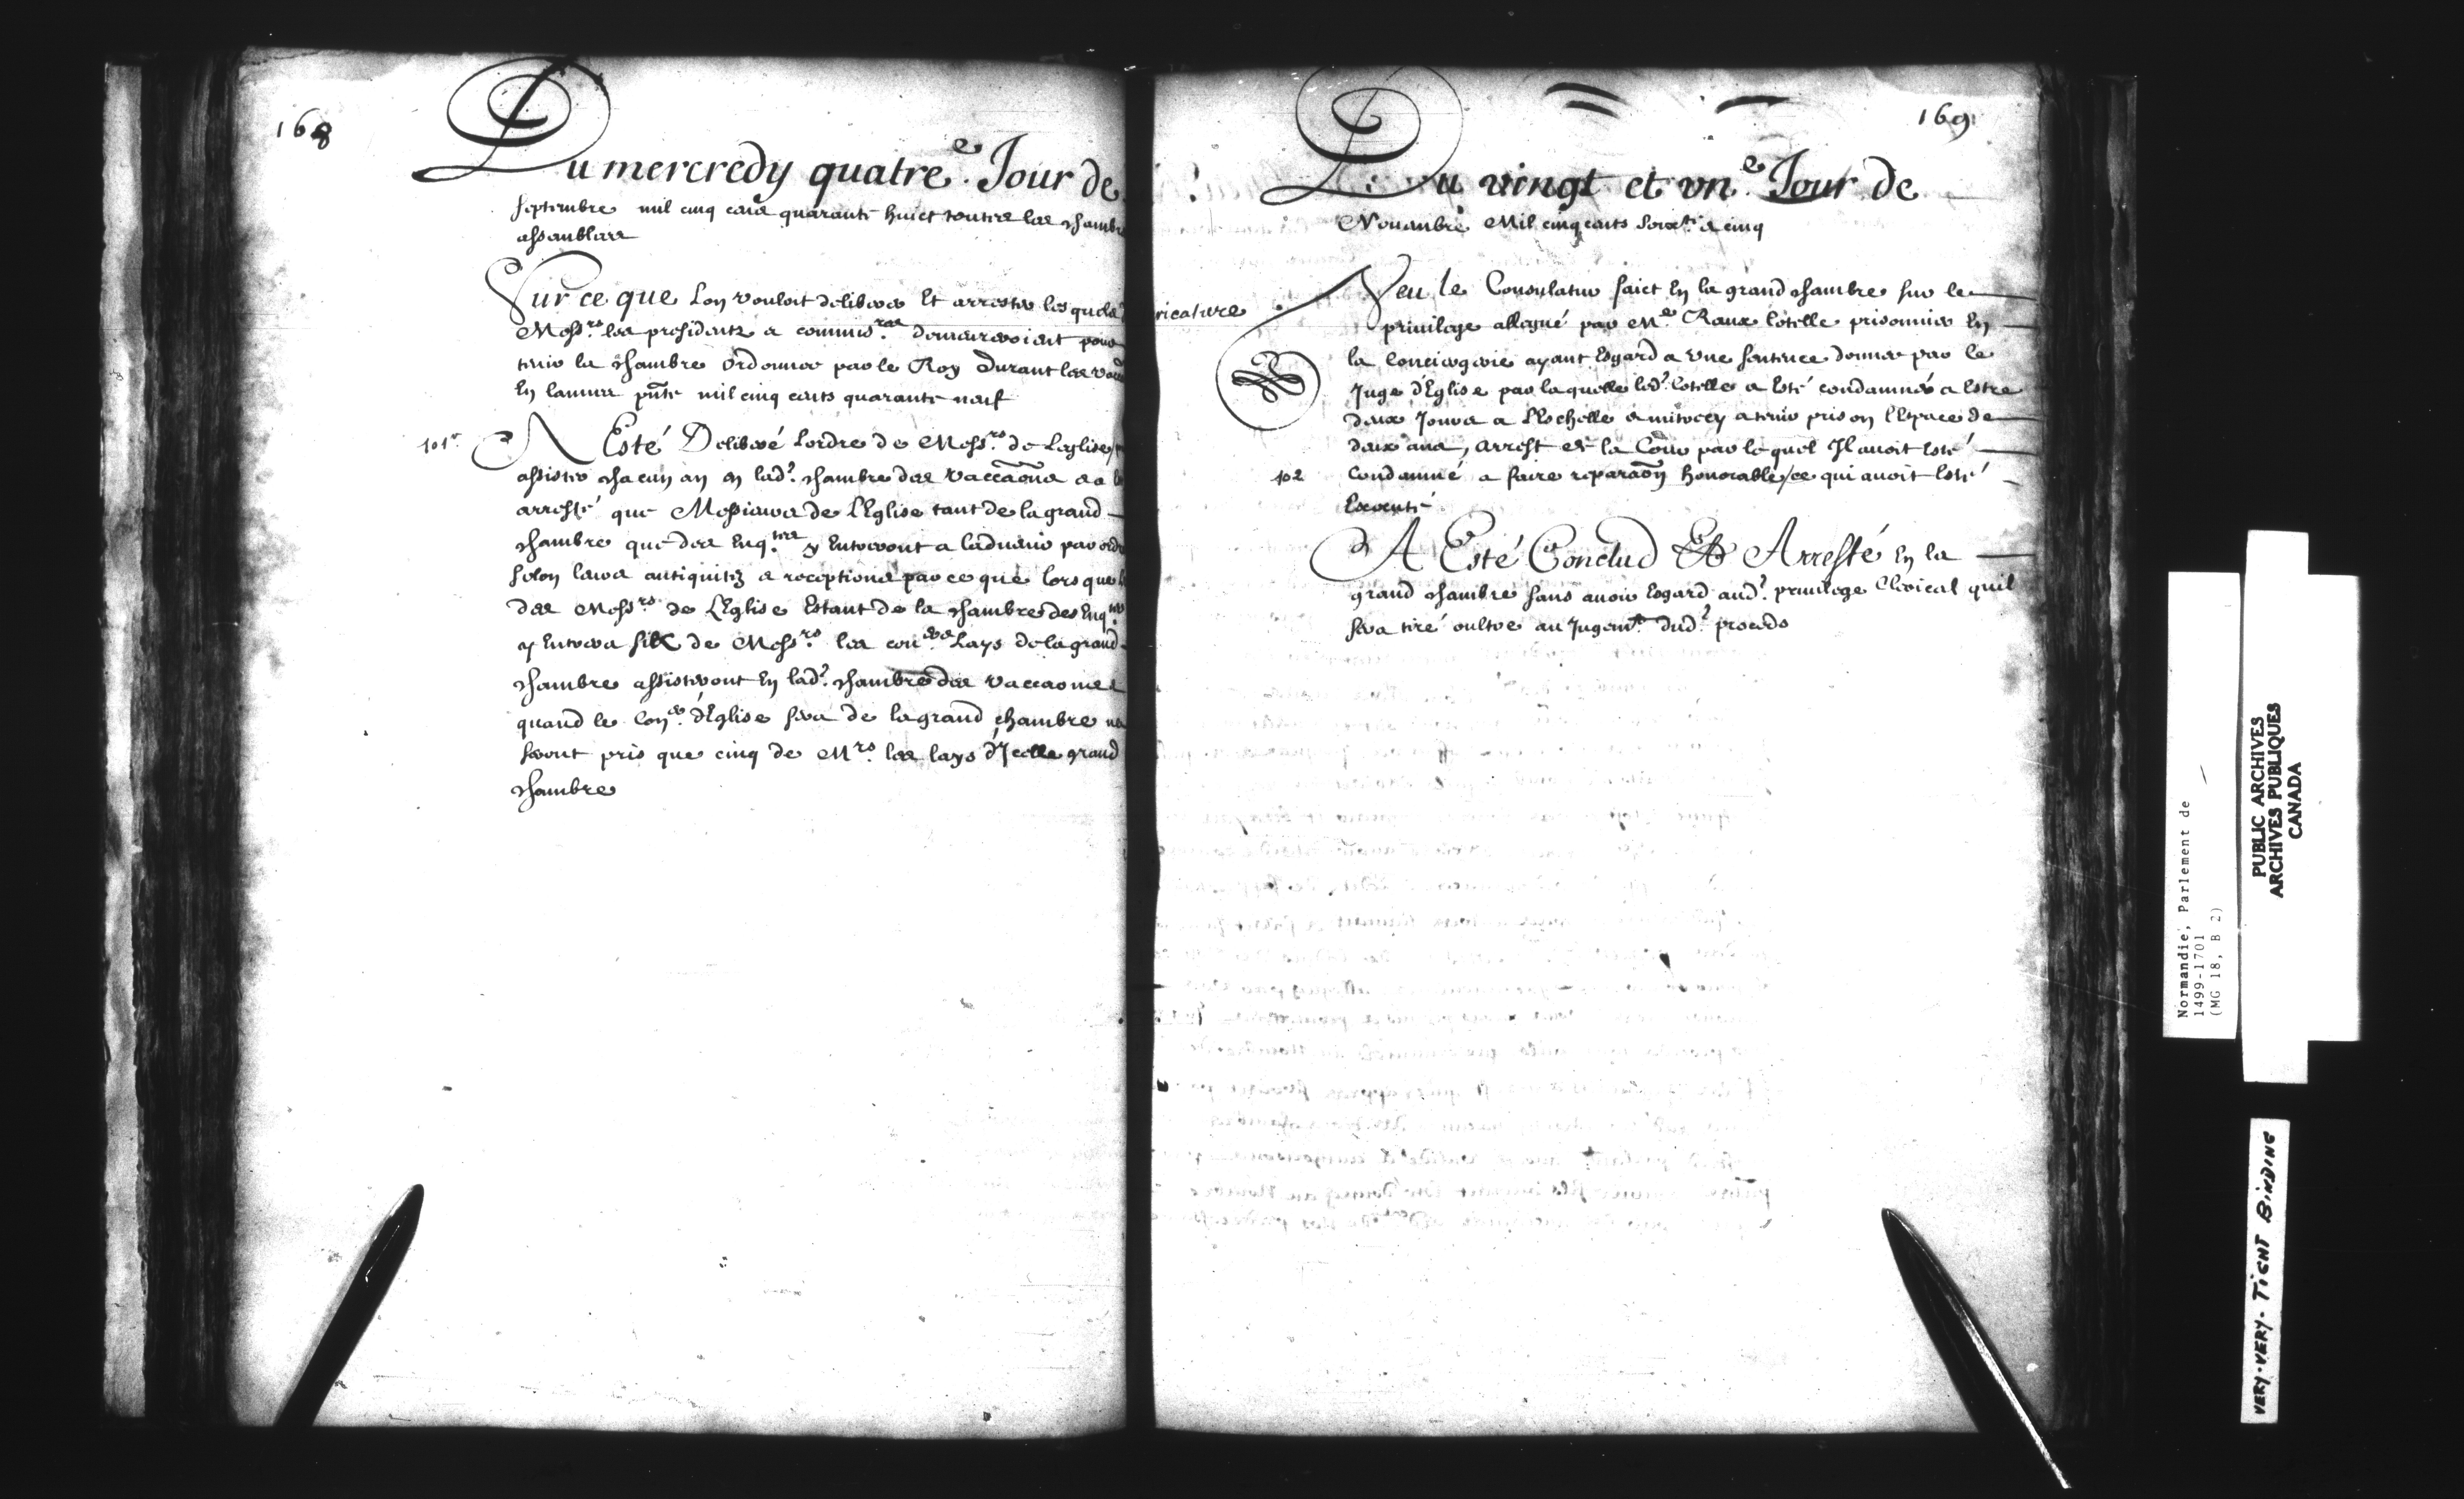 168
Du mercredy quatre.e Jour de
septembre mil cinq cens quarante huict toutes les chambre
assemblees
Sur ce que Lon vouloit deliberer Et arrester lesquels
Mess.rs les presidents & commis.res demeureroient pour
tenir la chambre ordonnee par le Roy Durant les
En lannee pñte mil cinq cents quarante neuf
101.e A Esté Deliberé Lordre de Mess.rs de Leglise
assister chacun an en lad.e chambre des vaccaõns & a
arresté que Messieurs de l'Eglise tant de la grand
chambre que des Enq.tes y Entreront a ladvenir par ordre
selon leurs antiquitez & receptions par ce que lors que
des Mess.rs de l'Eglise Estant de la chambre des Enq.tes
y Entrera six de Mess.rs les con.ers Lays de la grand
chambre assisteront En lad.e chambre des vaccaõns
quand le Con.er d'Eglise sera de la grand chambre ne
seront pris que cinq de M.rs les lays d'Jcelle grand
chambre
169
Du vingt et vn.e Jour de
Nouembre Mil cinq cents soix.te & cinq
ricature
Veu le Consulatur faict En la grand chambre sur le
priuilege allegué par M.e Raux lotelle prisonnier En
la conciergerie ayant Esgard a vne sentence donnee par le
Juge d'Eglise par laquelle led.t lotelle a Esté condamné a Estre
deux Jours a a tenir prison l'Espace de
deux ans, arrest de la Cour par lequel Il auoit Esté
102 condamné a faire reparaõn honorable, ce qui auoit Esté
Executé
A Esté Conclud Et Arresté En la
grand chambre sans auoir Esgard aud.t priuilege Clerical quil
sera tiré oultre au Jugem.t dud.t proceds
Normandie, Parlement de
1499-1701
(MG 18, B 2)
PUBLIC ARCHIVES
ARCHIVES PUBLIQUES
CANADA
VERY-VERY-TIGHT BINDING